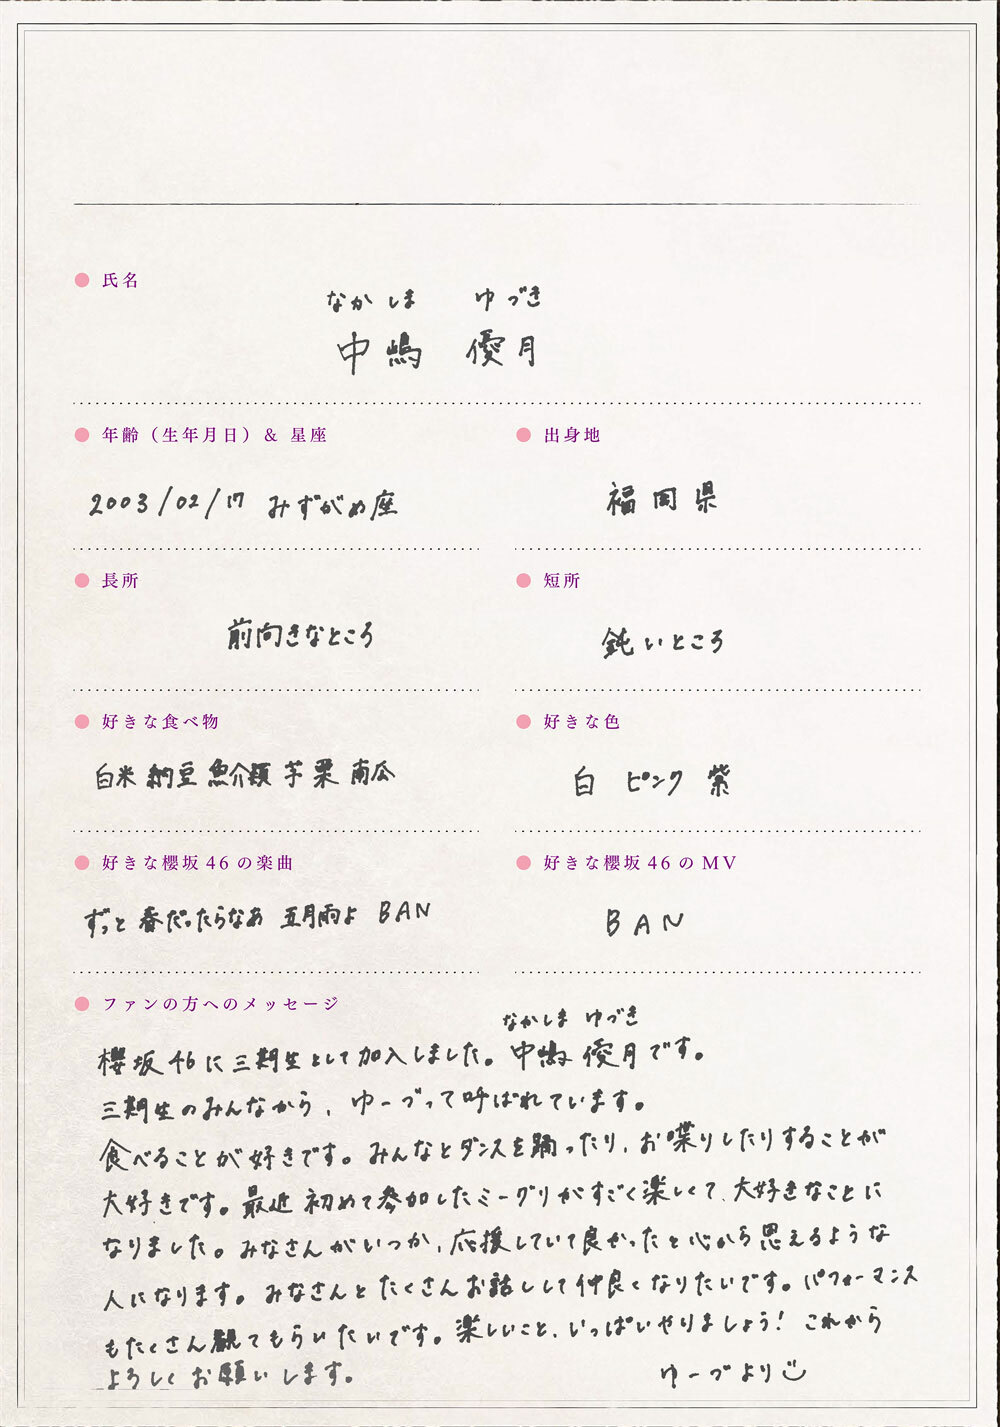 氏名
なかしま ゆづき
中嶋 優月
年齢（生年月日）& 星座
2003/02/17 みずがめ座
出身地
福岡県
長所
前向きなところ
短所
鈍いところ
好きな食べ物
白米 納豆 魚介類 芋 栗 南瓜
好きな色
白 ピンク 紫
好きな櫻坂46の楽曲
ずっと 春だったらなあ 五月雨よ BAN
好きな櫻坂46のMV
BAN
ファンの方へのメッセージ
なかしま ゆづき
櫻坂46に三期生として加入しました。中嶋 優月です。
三期生のみんなから、ゆーづって呼ばれています。
食べることが好きです。みんなとダンスを踊ったり、お喋りしたりすることが
大好きです。最近 初めて参加したミーグリがすごく楽しくて、大好きなことに
なりました。みなさんがいつか、応援していて良かったと心から思えるような
人になります。みなさんとたくさんお話しして仲良くなりたいです。パフォーマンス
もたくさん観てもらいたいです。楽しいこと、いっぱいやりましょう！これから
よろしくお願いします。
ゆーづより